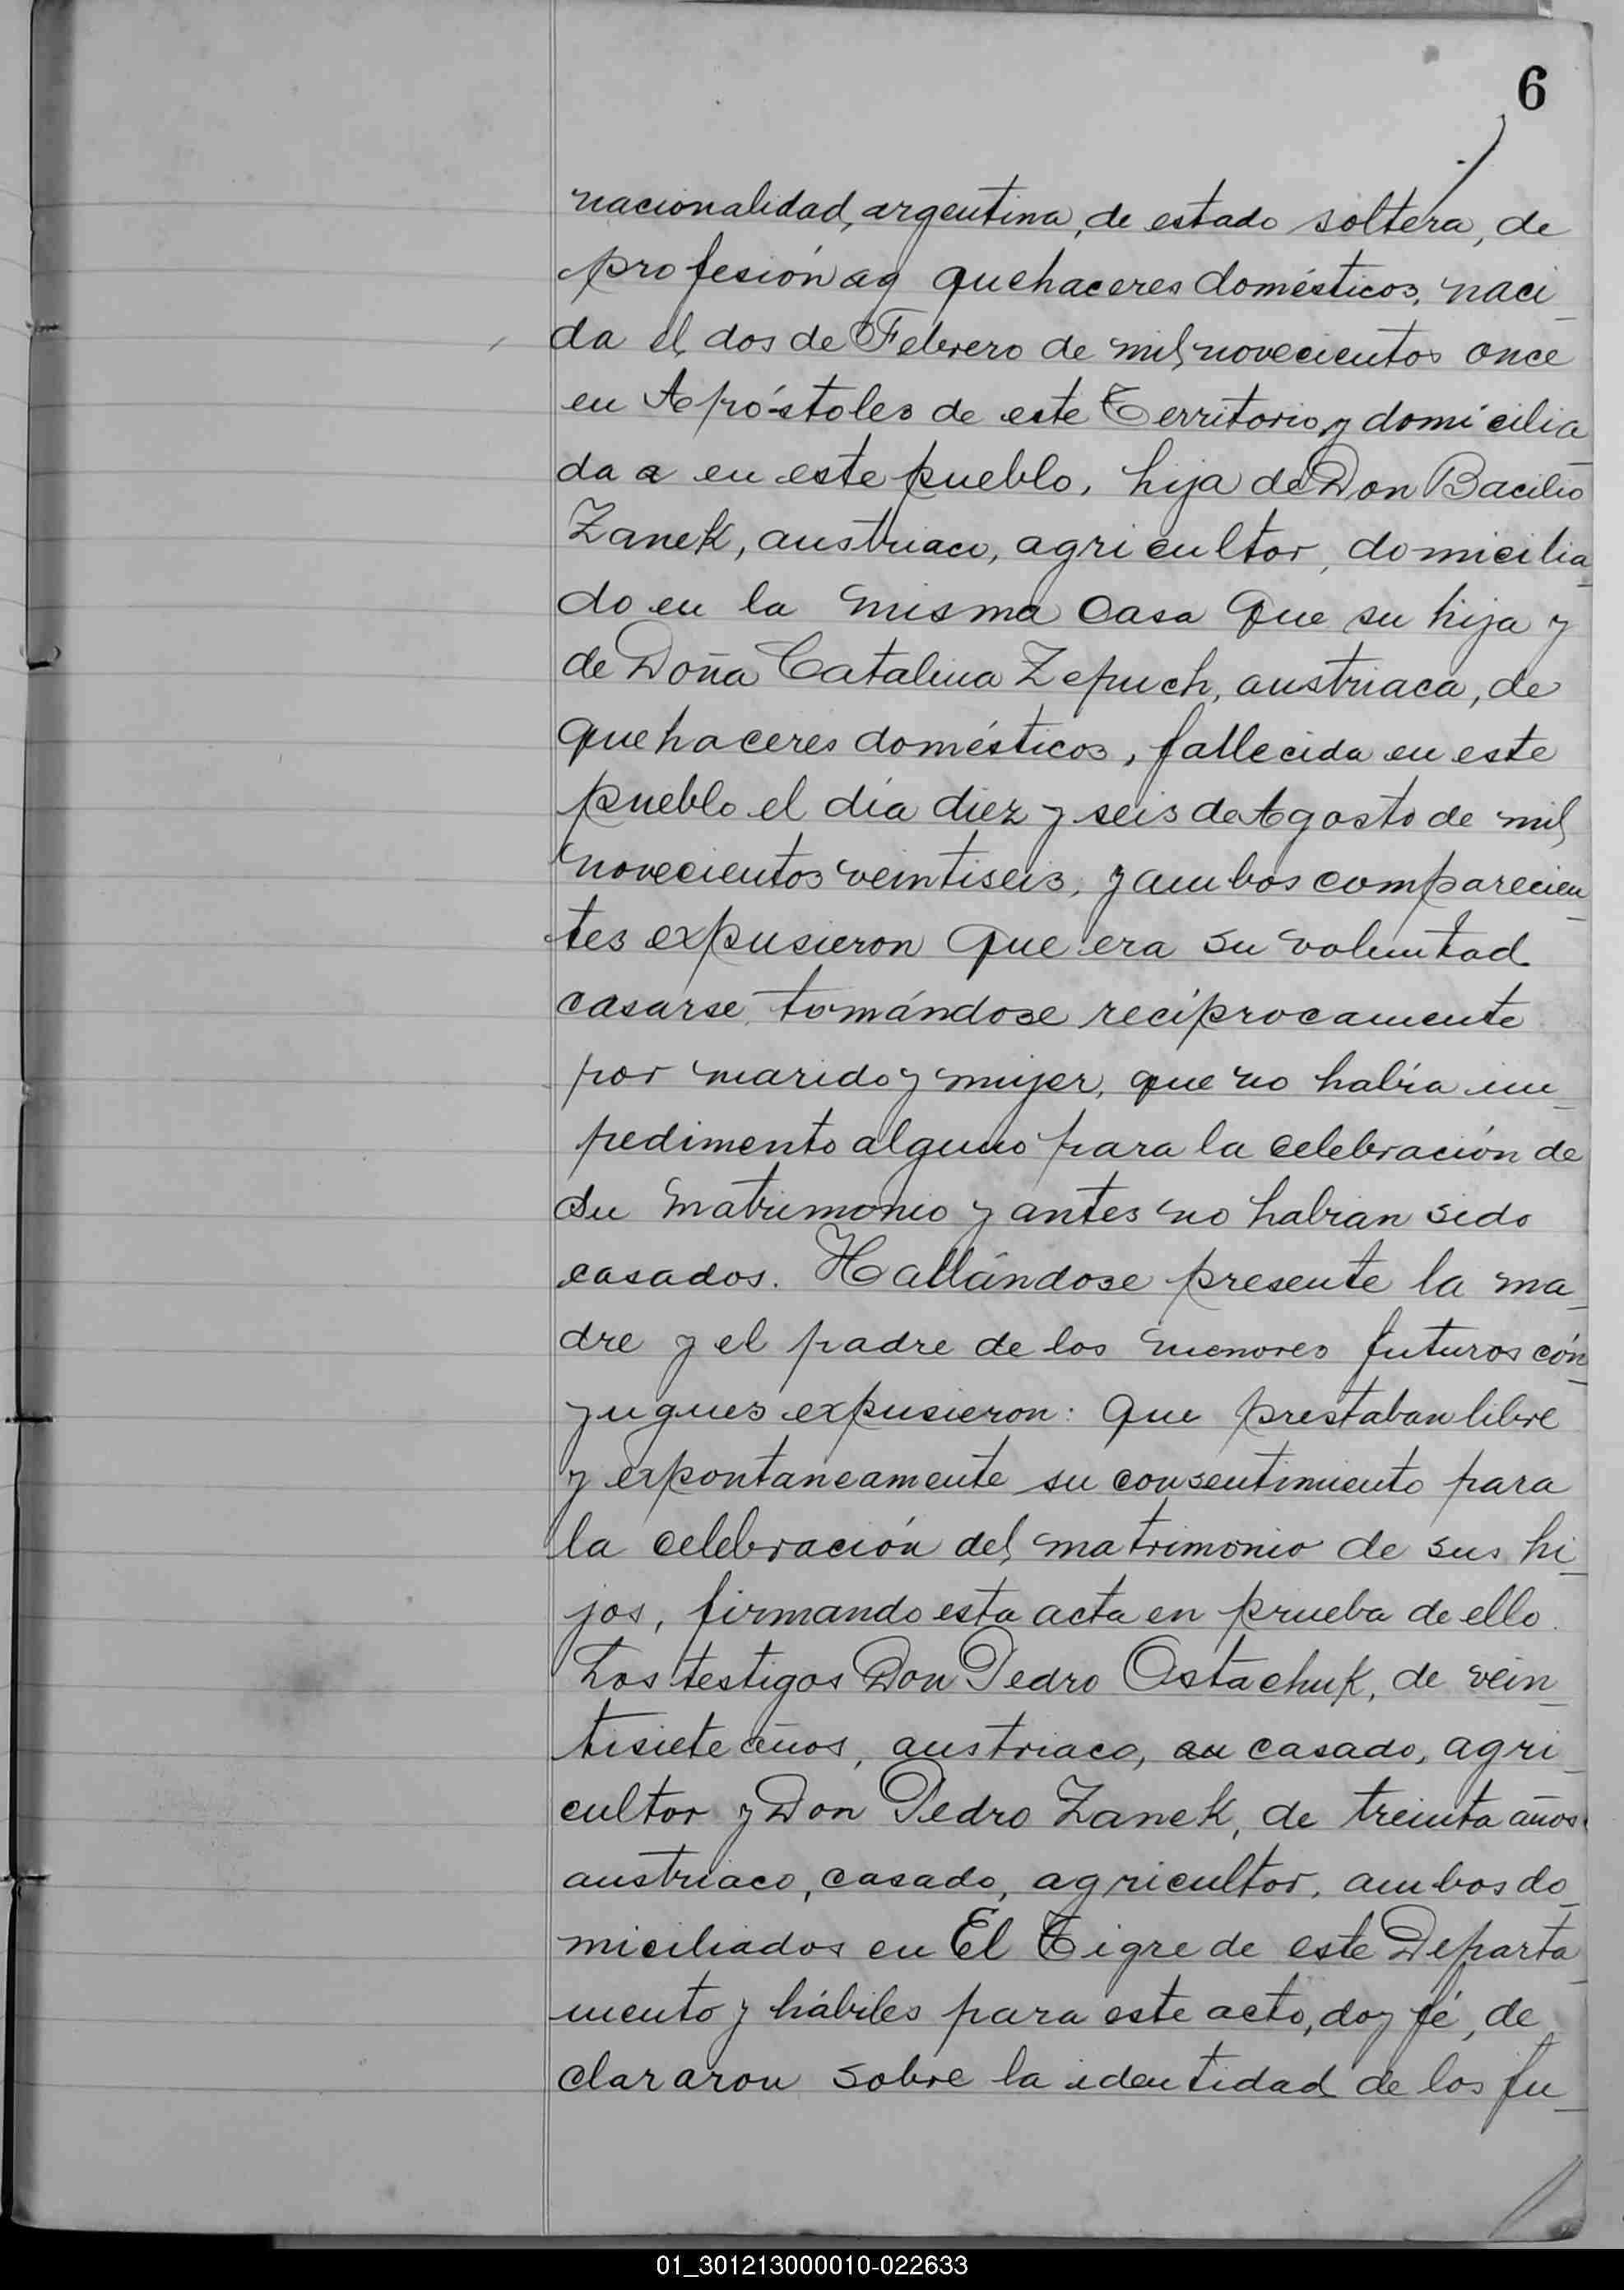 6
nacionalidad, argentina, de estado soltera, de
profesión ag quehaceres domésticos, naci_
da el dos de Febrero de mil novecientos once
en Apóstoles de este Territorio y domicilia_
da a en este pueblo, hija de Don Bacilio
Zanek, austriaco, agricultor, domicilia_
do en la misma casa que su hija y
de Doña Catalina Zepuch, austriaca, de
quehaceres domésticos, fallecida en este
pueblo el día diez y seis de Agosto de mil
novecientos veintiseis, y ambos comparecien_
tes expusieron que era su voluntad
casarse tomándose recíprocamente
por marido y mujer, que no había im_
pedimento alguno para la celebración de
su matrimonio y antes no habían sido
casados. Hallándose presente la ma_
dre y el padre de los menores futuros cón_
yugues expusieron: que prestaban libre
y expontaneamente su consentimiento para
la celebración del matrimonio de sus hi_
jos, firmando esta acta en prueba de ello.
Los testigos Don Pedro Ostachuk, de vein_
tisiete años, austriaco, casado, agri_
cultor y Don Pedro Zanek, de treinta años
austriaco, casado, agricultor, ambos do_
miciliados en El Tigre de este Departa_
mento y hábiles para este acto, doy fé, de_
clararon sobre la identidad de los fu_
01_301213000010-022633